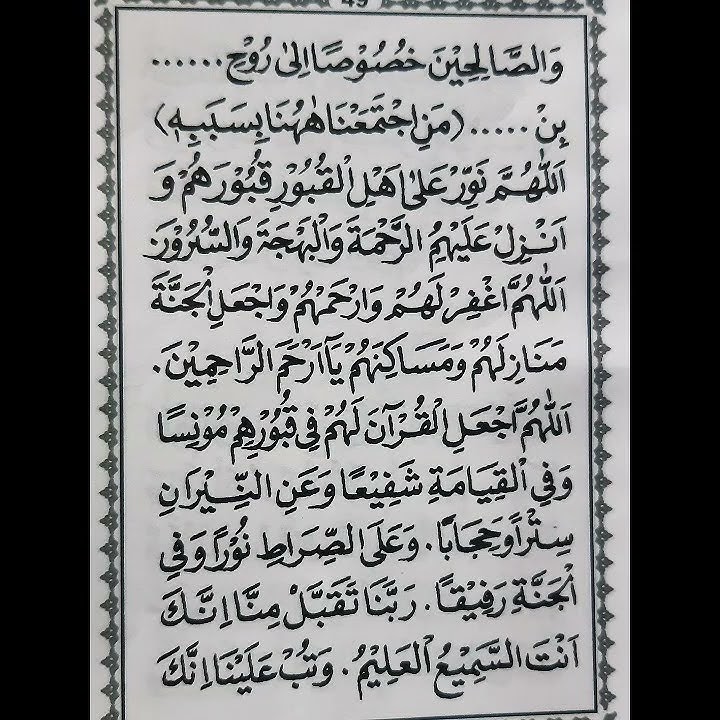 وَالصَّالِحِيْنَ خُصُوْصًا اِلىٰ رُوْحِ ......
بِنْ ..... (مَنِ اجْتَمَعْنَا هٰهُنَا بِسَبَبِهٖ)
اَللّٰهُمَّ نَوِّرْ عَلىٰ اَهْلِ الْقُبُوْرِ قُبُوْرَهُمْ وَ
اَنْزِلْ عَلَيْهِمُ الرَّحْمَةَ وَالْبَهْجَةَ وَالسُّرُوْرَ.
اَللّٰهُمَّ اغْفِرْ لَهُمْ وَارْحَمْهُمْ وَاجْعَلِ الْجَنَّةَ
مَنَازِلَهُمْ وَمَسَاكِنَهُمْ يَآ اَرْحَمَ الرَّاحِمِيْنَ.
اَللّٰهُمَّ اجْعَلِ الْقُرْآنَ لَهُمْ فِي قُبُوْرِهِمْ مُوْنِسًا
وَفِي الْقِيَامَةِ شَفِيْعًا وَعَنِ النِّيْرَانِ
سِتْرًا وَحِجَابًا. وَعَلَى الصِّرَاطِ نُوْرًا وَفِي
الْجَنَّةِ رَفِيْقًا. رَبَّنَا تَقَبَّلْ مِنَّا اِنَّكَ
اَنْتَ السَّمِيْعُ الْعَلِيْمُ. وَتُبْ عَلَيْنَا اِنَّكَ